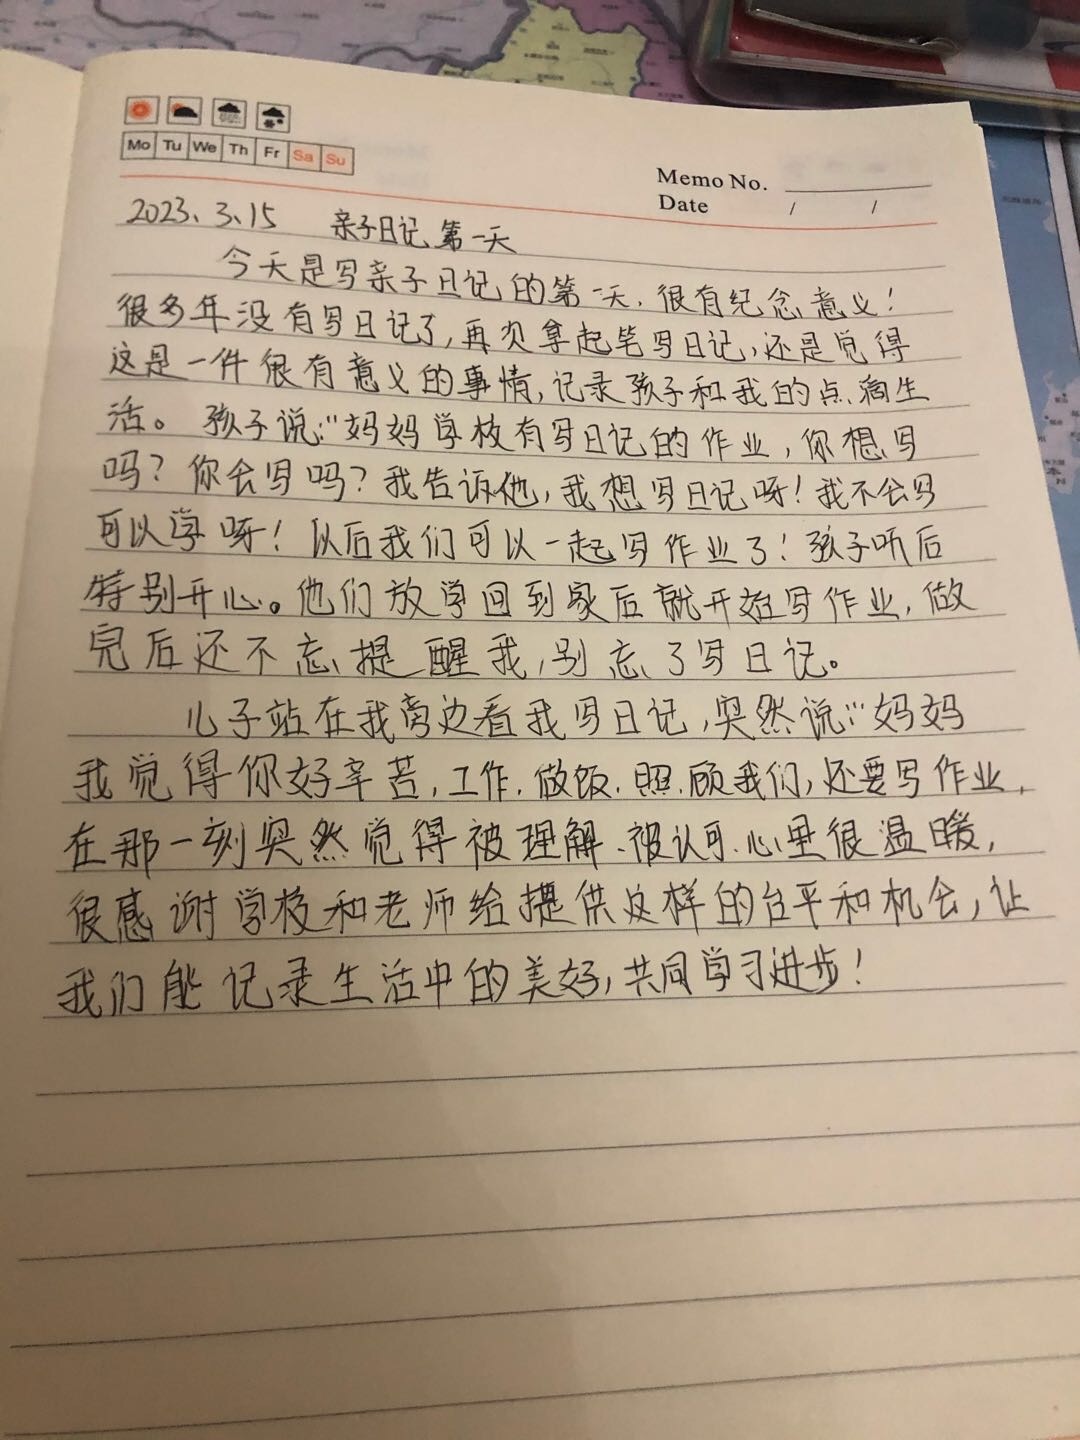 Mo Tu We Th Fr Sa Su
Memo No.
Date / /
2023.3.15 亲子日记 第一天
今天是写亲子日记的第一天,很有纪念意义!
很多年没有写日记了,再次拿起笔写日记,还是觉得
这是一件很有意义的事情,记录孩子和我的点滴生
活。孩子说:"妈妈学校有写日记的作业,你想写
吗?你会写吗?我告诉他,我想写日记呀!我不会写
可以学呀!以后我们可以一起写作业了!孩子听后
特别开心。他们放学回到家后就开始写作业,做
完后还不忘提醒我,别忘了写日记。
儿子站在我旁边看我写日记,突然说:"妈妈
我觉得你好辛苦,工作.做饭.照顾我们,还要写作业,
在那一刻突然觉得被理解、被认可.心里很温暖,
很感谢学校和老师给提供这样的台平和机会,让
我们能记录生活中的美好,共同学习进步!